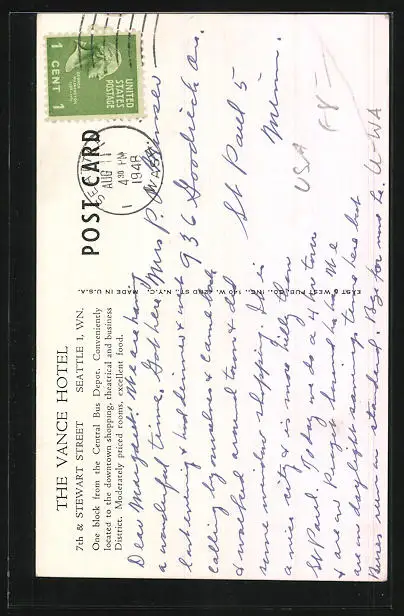 THE VANCE HOTEL
7th & STEWART STREET SEATTLE 1, WN.
One block from the Central Bus Depot. Conveniently
located to the downtown shopping, theatrical and business
District. Moderately priced rooms, excellent food.
POST CARD
EAST & WEST PUB. CO., INC., 140 W. 42ND ST., N.Y.C. MADE IN U.S.A.
UNITED
STATES
POSTAGE
1 CENT 1
SEATTLE
AUG 11
4 30 PM
1948
WASH
Dear Margaret: We are having
a wonderful time. Got here
last evening & had dinner & went
calling by ourselves & came back
& walked around town & did
some window shopping. It is
a nice city & is more hilly than
St Paul. Today we do a 4 hr tour
& are
are on daylight savings time here but
Buses on standard. Bye for now
Mrs P.
936 Goodrich Av.
St Paul 5
Minn.
USA
U-WA